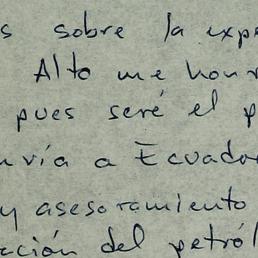 s sobre la expe
Alto me honr
pues seré el p
nvía a Ecuador
y asesoramiento
ación del petról